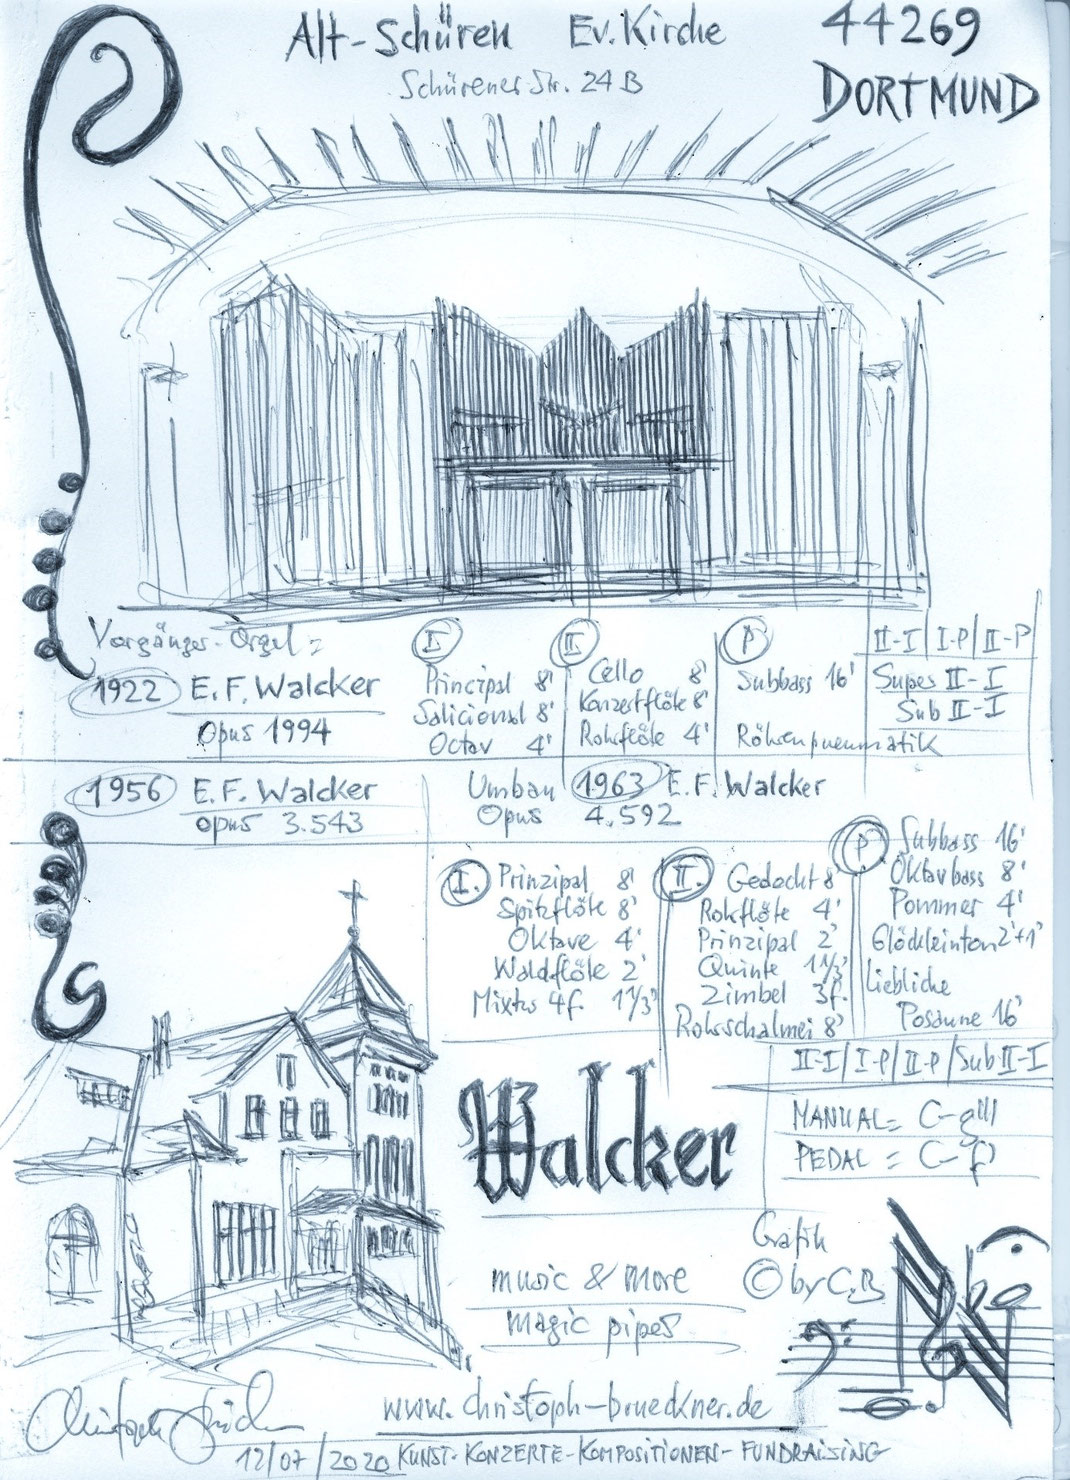 Alt-Schüren Ev. Kirche
44269
Schürener Str. 24 B
DORTMUND
Vorgänger-Orgel:
1922 E. F. Walcker
Opus 1994
I.
Principal 8'
Salicional 8'
Octav 4'
II.
Cello 8'
Konzertflöte 8'
Rohrflöte 4'
P
Subbass 16'
Röhrenpneumatik
II-I / I-P / II-P
Super II-I
Sub II-I
1956 E. F. Walcker
opus 3.543
Umbau 1963 E. F. Walcker
Opus 4.592
I.
Prinzipal 8'
Spitzflöte 8'
Oktave 4'
Waldflöte 2'
Mixtur 4f. 1 1/3'
II.
Gedackt 8'
Rohrflöte 4'
Prinzipal 2'
Quinte 1 1/3'
Zimbel 3f.
Rohrschalmei 8'
P
Subbass 16'
Oktavbass 8'
Pommer 4'
Glöckleinton 2'+1'
Liebliche
Posaune 16'
II-I / I-P / II-P / Sub II-I
MANUAL = C-g'''
PEDAL = C-f'
Walcker
Grafik
© by C.B
music & more
magic pipes
www.christoph-brueckner.de
12/07/2020 KUNST-KONZERTE-KOMPOSITIONEN-FUNDRAISING